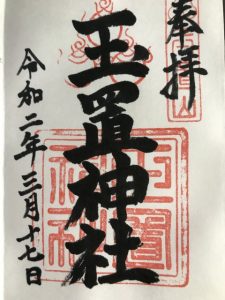 奉拝
玉置神社
令和二年三月十七日